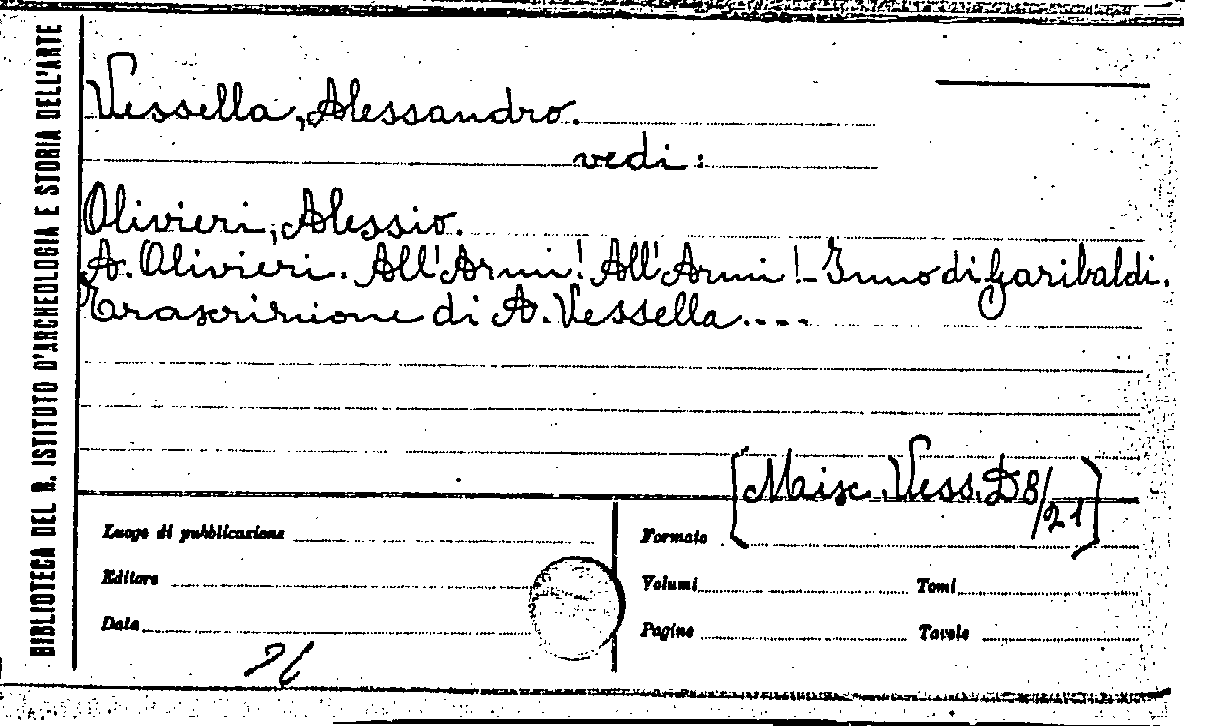 BIBLIOTECA DEL R. ISTITUTO D'ARCHEOLOGIA E STORIA DELL'ARTE
Vessella, Alessandro.
vedi:
Olivieri, Alessio.
A. Olivieri. All'Armi! All'Armi! - Inno di Garibaldi.
Trascrizione di A. Vessella....
[Misc. Vess. D 8/21]
Luogo di pubblicazione
Editore
Data
Formato
Volumi Tomi
Pagine Tavole